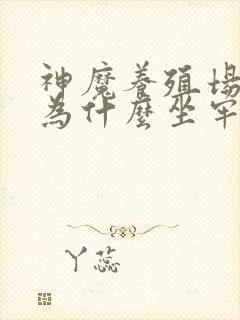 神魔養殖場
為什麼坐牢
丫蕊